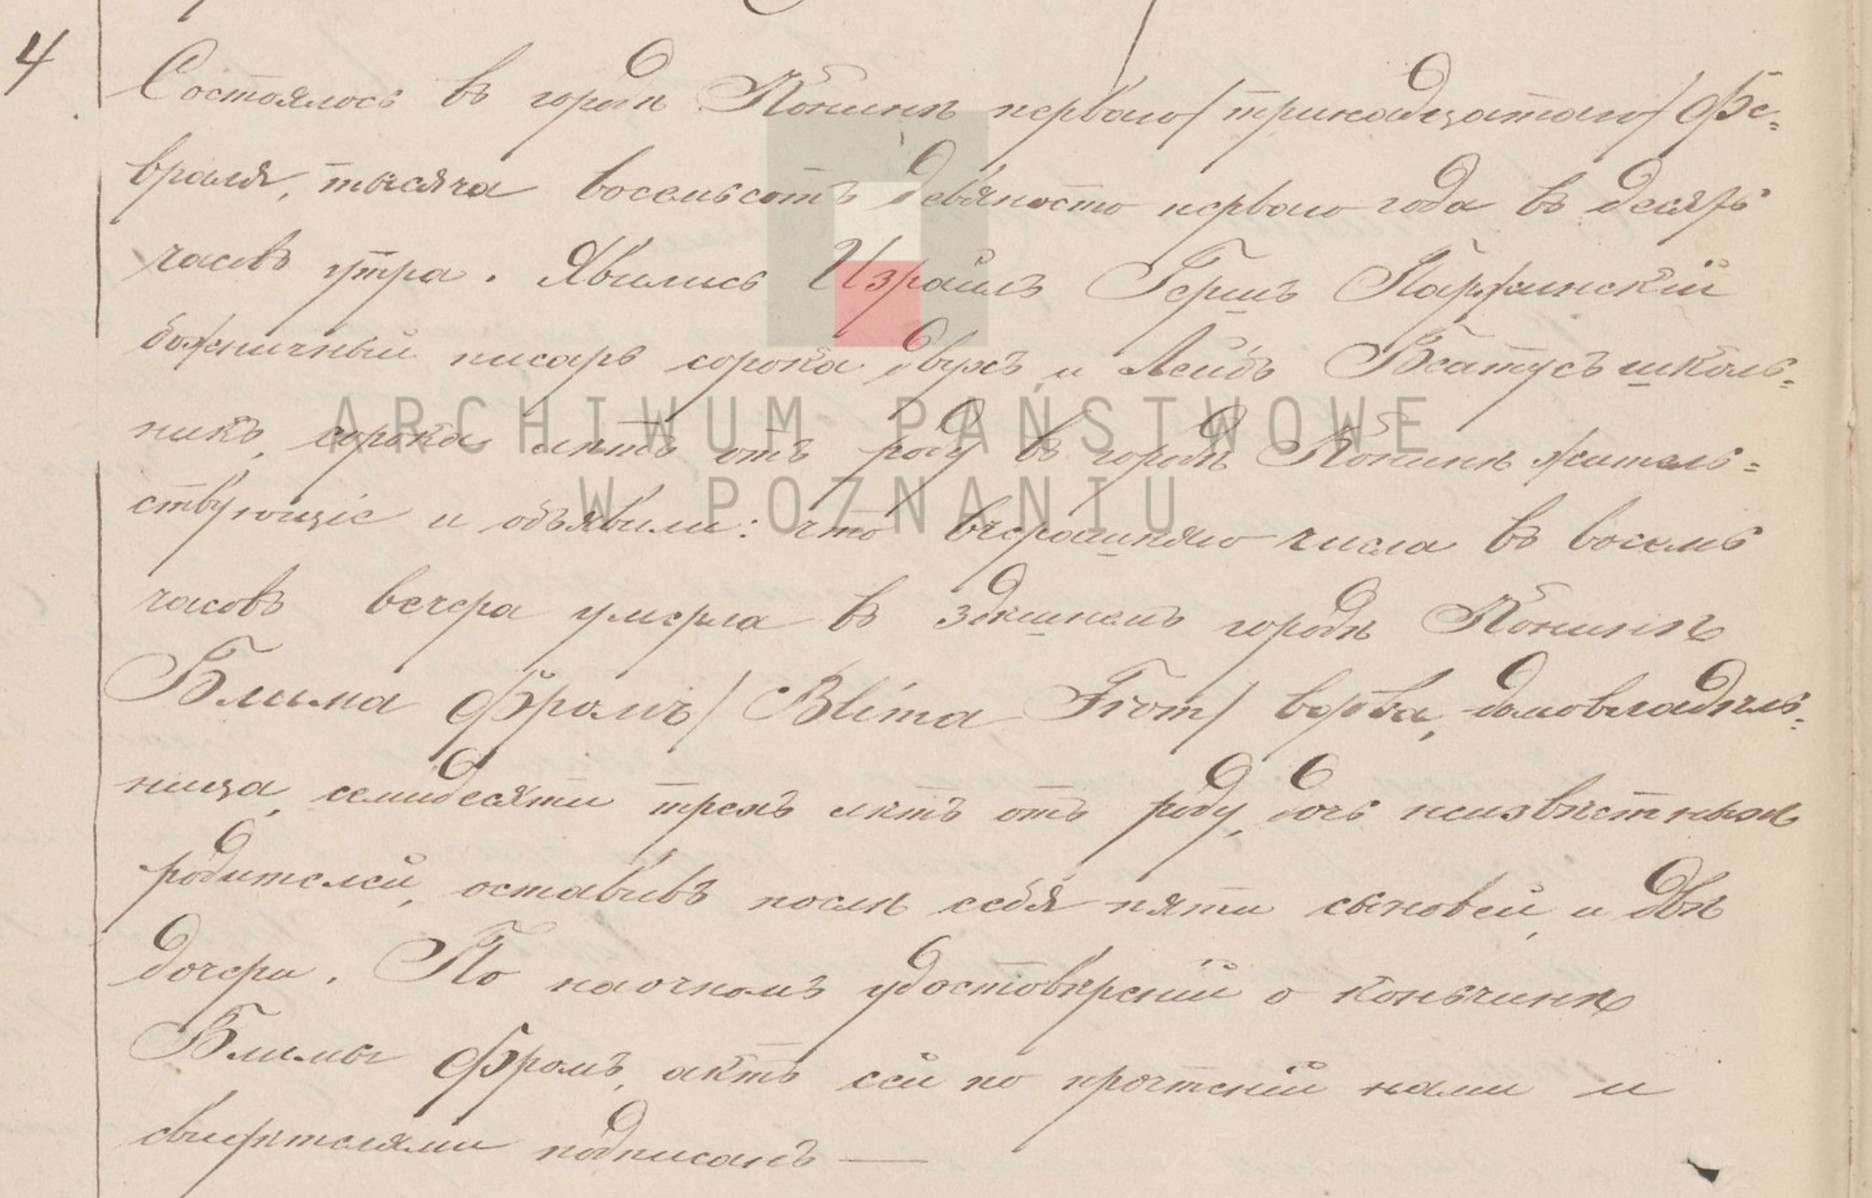 4
Состоялось въ городѣ Конинѣ перваго/тринадцатаго/ Фе-
враля, тысяча восемьсотъ девяносто перваго года въ десять
часовъ утра. Явились Израиль Гершъ Паржинскій
божничный писарь сорока двухъ, и Лейбъ Беатусъ школь-
никъ, сорока лѣтъ отъ роду въ городѣ Конинѣ житель-
ствующіе и объявили: что вчерашняго числа въ восемь
часовъ вечера умерла въ здѣшнемъ городѣ Конинѣ
Блима Фромъ/ Blima From/ вдова, домовладѣль-
ница, семидесяти трехъ лѣтъ отъ роду, дочь неизвѣстныхъ
родителей, оставивъ послѣ себя пяти сыновей, и двѣ
дочери. По наочномъ удостовѣреніи о коньчинѣ
Блимы Фромъ, актъ сей по прочтеніи нами и
свидѣтелями подписанъ —
ARCHIWUM PAŃSTWOWE
W POZNANIU